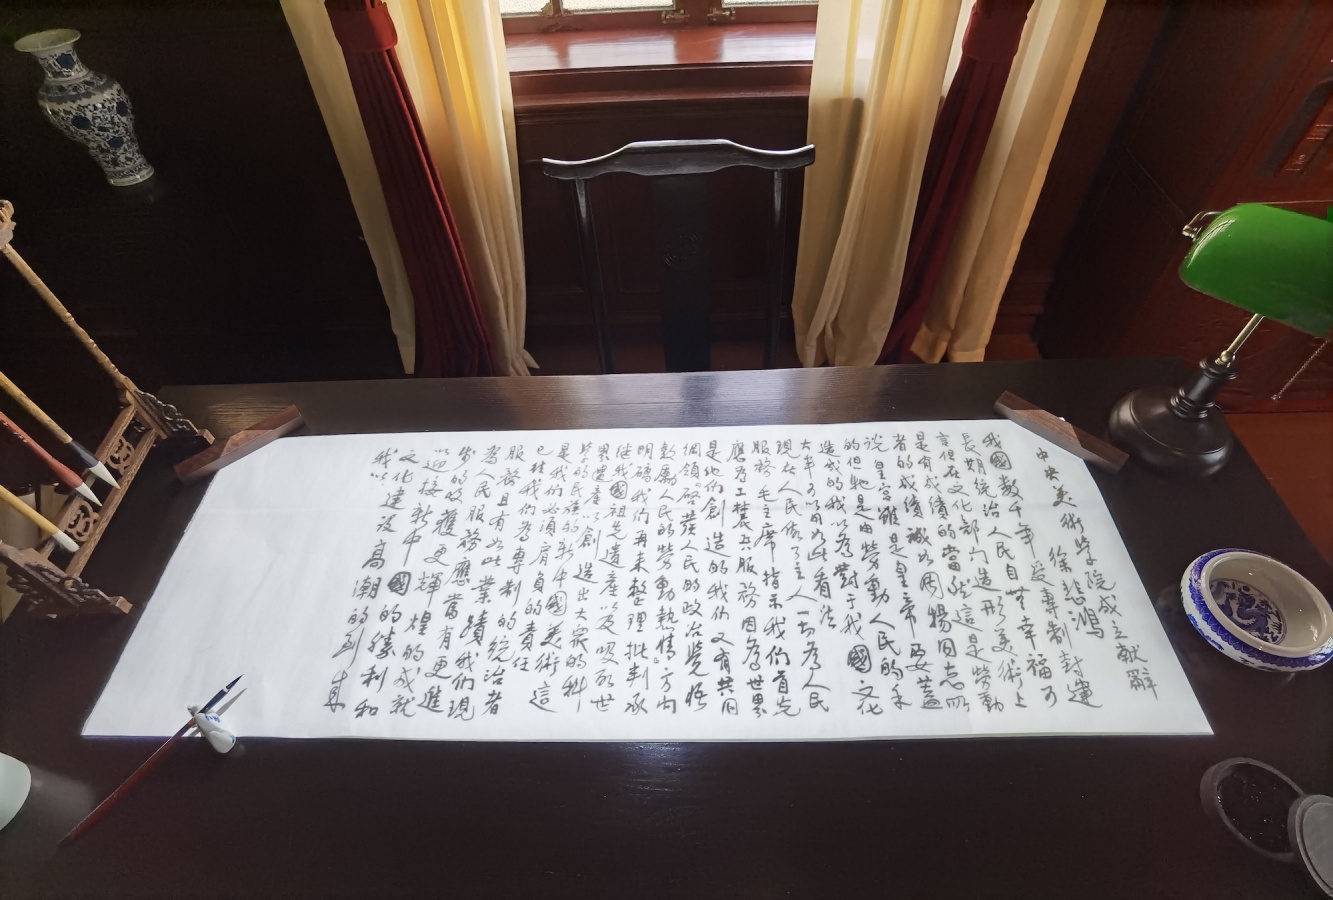 中央美術学院成立献辞
徐悲鴻
我國數千年受專制封建
長期統治人民自世幸福可
言但在文化部门造形美術上
是有成績的當然這是勞動
者的成績誠如周揚同志所
说皇宫雖是皇帝要蓋
的但牠是由勞動人民的手
造成的我以為對于我國文化
大半可以用如此看法
現在人民做了主人一切為人民
服務毛主席指示我们首先
應為工農兵服務因為世界
是他们創造的我们又有共同
綱領啓發人民的政治覺悟
鼓勵人民的勞動熱情方向
明確我们再来整理批判承
继我國祖先遺產以及吸取世
界遺產以創造出大衆的科
學的民族的新中國美術這
是我们必須肩負的責任
已往我们為專制的統治者
服務且有如此業績我们現
為人民服務應當有更進
步的收獲更輝煌的成就
迎接新中國的勝利和
文化建设高潮的到来
我以